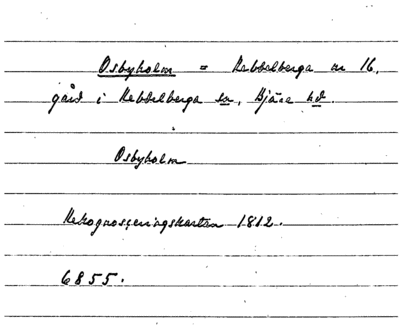 Osbyholm = Kebbelberga nr 16,
gård i Kebbelberga sn, Bjäre hd.
Osbyholm
Rekognosceringskartan 1812.
6855.